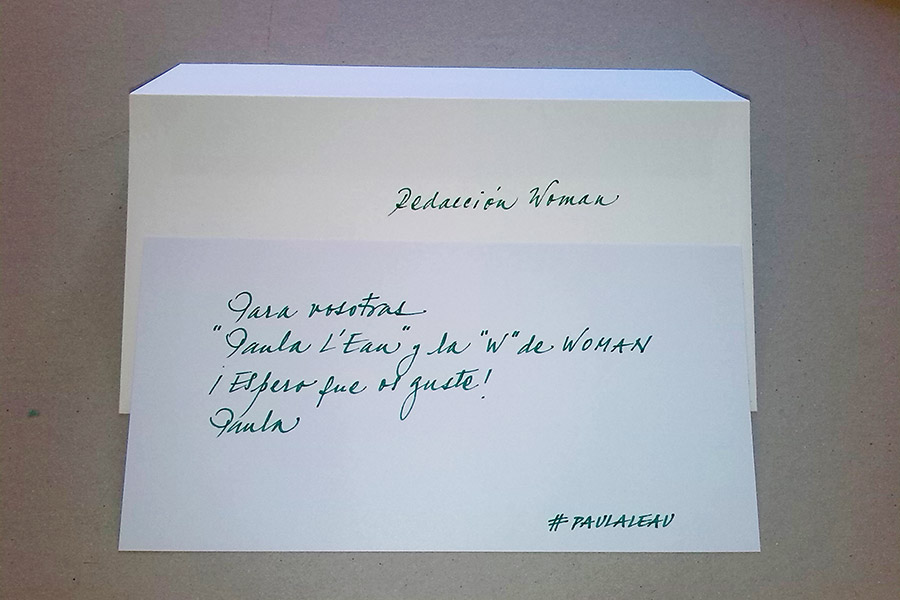 Redacción Woman
Para vosotras
"Paula L'Eau" y la "W" de WOMAN
¡Espero que os guste!
Paula
#PAULALEAU